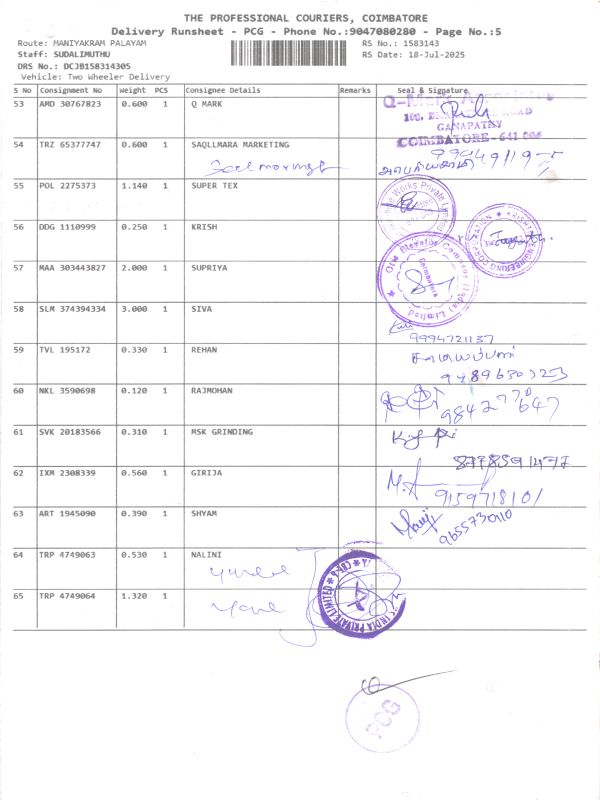 THE PROFESSIONAL COURIERS, COIMBATORE
Delivery Runsheet - PCG - Phone No.:9047080280 - Page No.:5
Route: MANIYAKRAM PALAYAM RS No.: 1583143
Staff: SUDALIMUTHU RS Date: 18-Jul-2025
DRS No.: DCJB158314305
Vehicle: Two Wheeler Delivery
S No Consignment No Weight PCS Consignee Details Remarks Seal & Signature
53 AMD 30767823 0.600 1 Q MARK
ROAD
GANAPATHY
COIMBATORE - 641 006
54 TRZ 65377747 0.600 1 SAQLLMARA MARKETING
55 POL 2275373 1.140 1 SUPER TEX
Works Private Limited
56 DDG 1110999 0.250 1 KRISH
KRISHTEC ENGINEERING CORPORATION
57 MAA 303443827 2.000 1 SUPRIYA
Otis Elevator Company (India) Limited
Coimbatore
58 SLM 374394334 3.000 1 SIVA
9994721137
59 TVL 195172 0.330 1 REHAN
9489630723
60 NKL 3590698 0.120 1 RAJMOHAN
9842770647
61 SVK 20183566 0.310 1 MSK GRINDING
62 IXM 2308339 0.560 1 GIRIJA
9159718101
63 ART 1945090 0.390 1 SHYAM
9655730110
64 TRP 4749063 0.530 1 NALINI
65 TRP 4749064 1.320 1
INDIA PRIVATE LIMITED
PCG